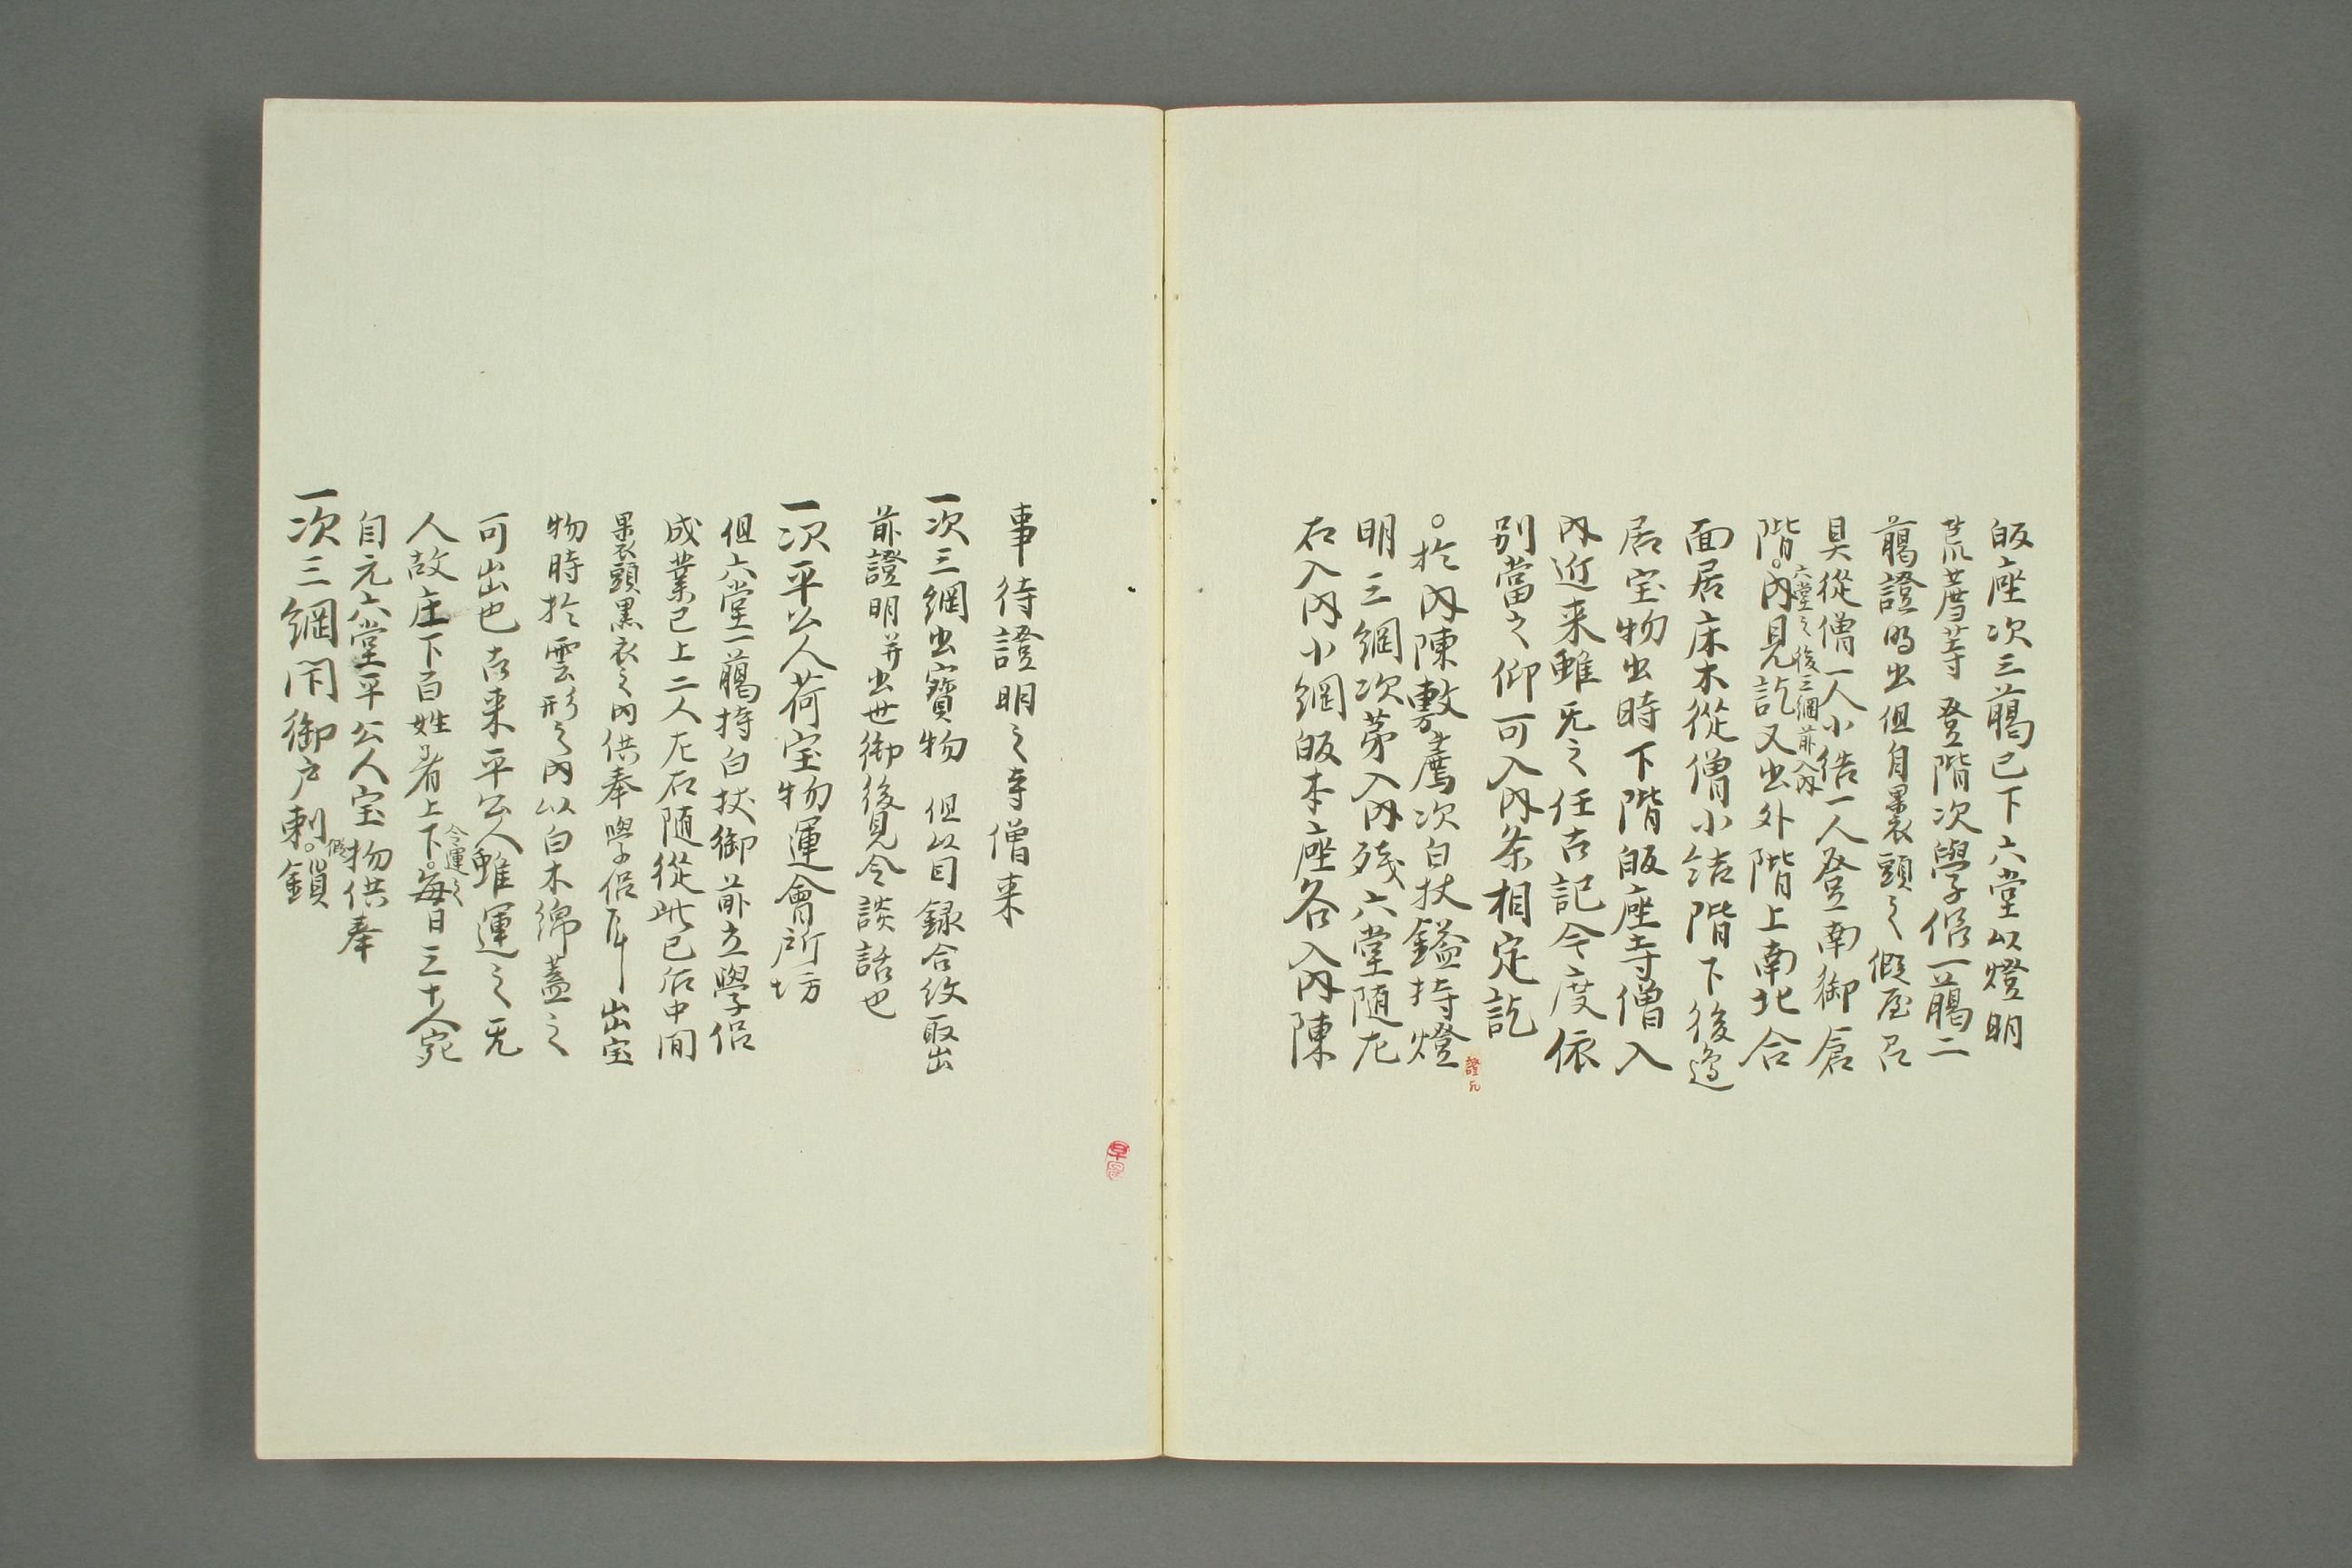 皈座次三﨟已下六堂以燈明
荒薦等 登階次學侶一﨟二
﨟證明出但自裹頭之假屋召
具從僧一人小結一人登南御倉
階。內見訖又出外階上南北合
六堂之後三綱前入內
面居床木從僧小結階下後邊
居宝物出時下階皈座寺僧入
內近来雖无之任古記今度依
別當之仰可入內条相定訖
。於內陳敷薦次白杖鎰持燈
證凡
明三綱次第入內殘六堂随左
右入內小綱皈本座各入內陳
事待證明之寺僧来
一次三綱出寳物 但以目録合後取出
前證明并出世御後見令談話也
一次平公人荷宝物運會所坊
但六堂一﨟持白杖御前立學侶
成業已上二人左右随從此已后中間
裹頭黒衣之內供奉學侶 出宝
物時於雲形之內以白木綿蓋之
可出也 古来平公人雖運之无
人故庄下百姓着上下。每日三十人宛
令運之
自元六堂平公人宝物供奉
一次三綱閇御戸刺。鎖
假